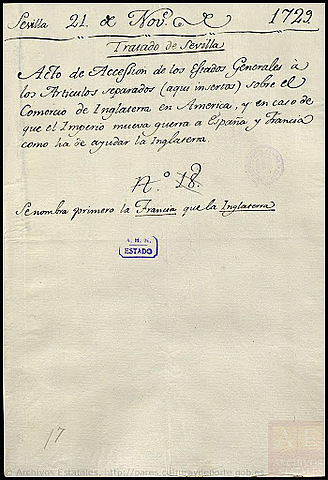 Sevilla 21. de Nov.re 1729
Tratado de Sevilla
Acto de Accession de los Estados Generales à
los Articulos separados (aqui insertos) sobre el
Comercio de Inglaterra en America, y en caso de
que el Imperio mueva guerra a España y Francia
como ha de ayudar la Inglaterra.
N.º 18.
Se nombra primero la Francia que la Inglaterra
A. H. N.
ESTADO
17
© Archivos Estatales, http://pares.culturaydeporte.gob.es